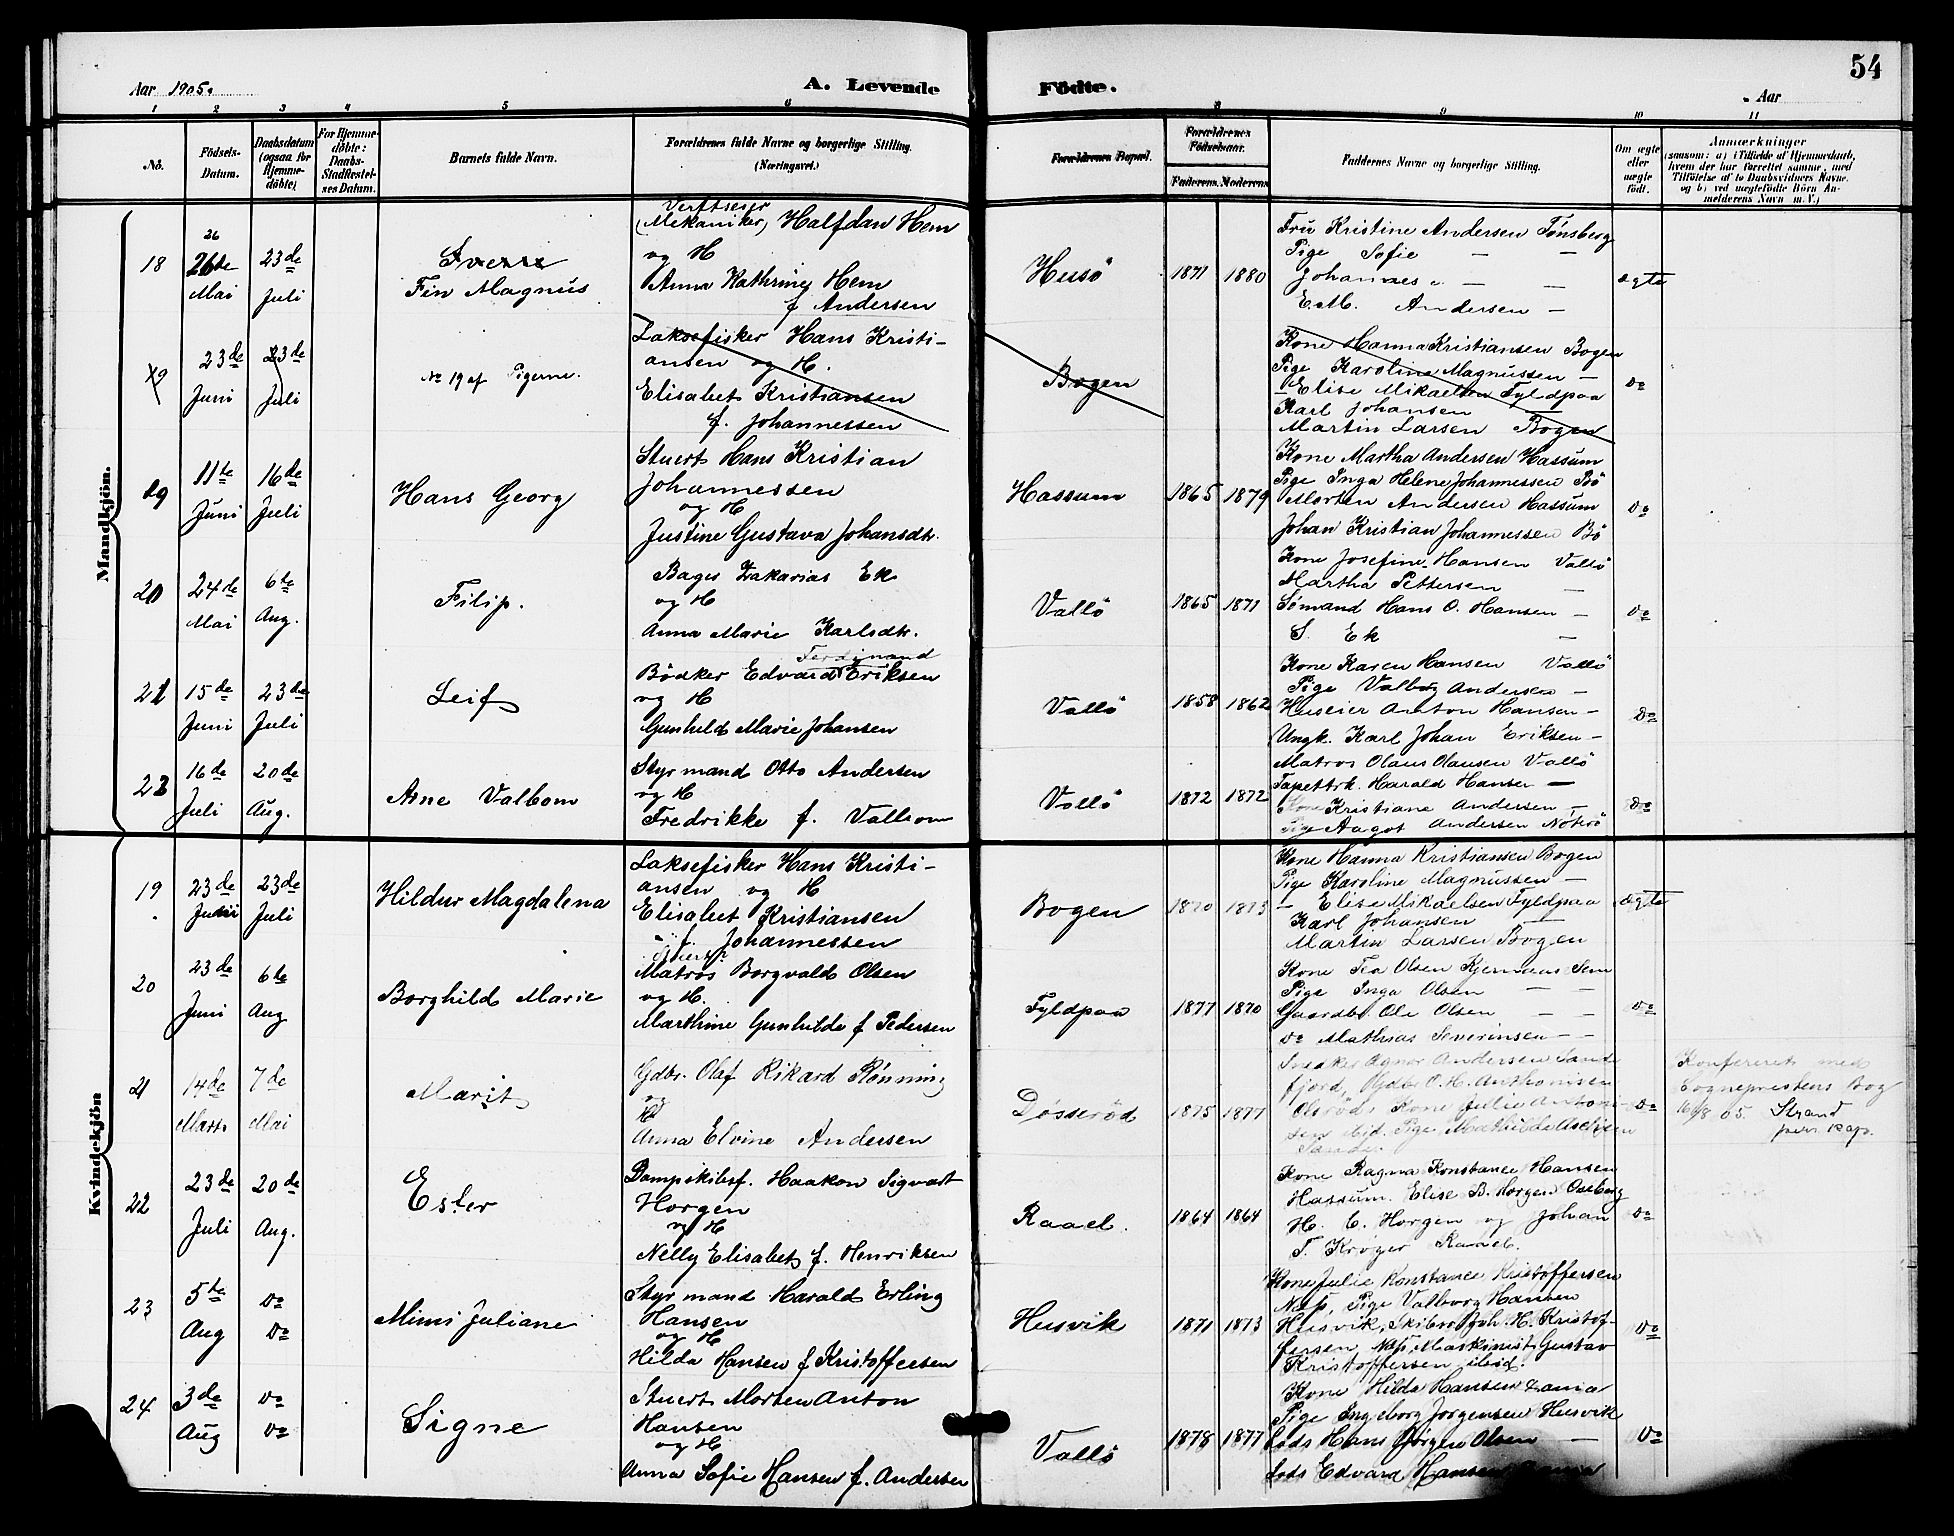 Aar 1905.
A. Levende
Födte.
54
Aar
1 2 3 4 5 6 8 9 10 11
No.
Födsels-
Datum.
Daabsdatum
(ogsaa for
Hjemme-
döbte)
For Hjemme-
döbte:
Daabs-
Stadfæstel-
ses Datum.
Barnets fulde Navn.
Forældrenes fulde Navne og borgerlige Stilling.
(Næringsvei.)
Forældrenes Bopæl.
Forældrenes
Födselsaar.
Faderens. Moderens
Faddernes Navne og borgerlige Stilling.
Om ægte
eller
uægte
födt.
Anmærkninger
(saasom: a) i Tilfælde af Hjemmedaab,
hvem der har forrettet samme, med
Tilföielse af to Daabsvidners Navne.
og b) ved uægtefödte Börn An-
melderens Navn m. V.)
Mandkjön.
18
26
26de
Mai
23de
Juli
Sverre
Fin Magnus
Verftseier
(Mekaniker) Halfdan Hem
og H
Anna Kathrine Hem
f Andersen
Husö
1871 1880
Fru Kristine Andersen Tønsberg
Pige Sofie — —
Johannes — —
E.M. Andersen —
ægte
19
23de
Juni
23de
Juli
No 19 af Pigerne.
Laksefisker Hans Kristi-
ansen og H.
Elisabet Kristiansen
f. Johannessen
Bogen
Kone Hanna Kristiansen Bogen
Pige Karoline Magnussen —
— Elise Mikaelsen Fyldpaa
Karl Johansen —
Martin Larsen Bogen
do
19
11te
Juni
16de
Juli
Hans Georg
Stuert Hans Kristian
Johannessen
og H
Justine Gustava Johansdtr.
Hassum
1865 1879
Kone Martha Andersen Hassum
Pige Inga Helene Johannessen Bö
Morten Andersen Hassum
Johan Kristian Johannessen Bö
do
20
24de
Mai
6te
Aug.
Filip.
Bager Zakarias Ek
og H
Anna Marie Karlsdtr.
Vallö
1865 1871
Kone Josefine Hansen Vallö
Martha Pettersen —
Sømand Hans O. Hansen —
S. Ek —
do
21
15de
Juni
23de
Juli
Leif
Ferdinand
Bödker Edvard Eriksen
og H
Gunhild Marie Johansen
Vallö
1858 1862
Kone Karen Hansen Vallö
Pige Valborg Andersen —
Huseier Anton Hansen —
Ungk. Karl Johan Eriksen —
do
22
16de
Juli
20de
Aug.
Arne Valbom
Styrmand Otto Andersen
og H
Fredrikke f. Valbom
Vallö
1872 1872
Matros Olaus Olausen Vallö
Tapettrk. Harald Hansen —
Kone Kristiane Andersen —
Pige Aagot Andersen Nøterö
do
Kvindekjön
19
23de
Juni
23de
Juli
Hildur Magdalena
Laksefisker Hans Kristi-
ansen og H
Elisabet Kristiansen
f. Johannessen
Bogen
1870 1873
Kone Hanna Kristiansen Bogen
Pige Karoline Magnussen —
— Elise Mikaelsen Fyldpaa
Karl Johansen —
Martin Larsen Bogen
ægte
20
23de
Juni
6te
Aug
Borghild Marie
Matros Borgvald Olsen
og H.
Marthine Gunhilde f Pedersen
Fyldpaa
1877 1870
Kone Tea Olsen Kjernaas Sem
Pige Inga Olsen — —
Gaardbr. Ole Olsen — —
do Mathias Severinsen — —
do
21
14de
Marts
7de
Mai
Marit
Gdbr. Olaf Rikard Rønning
og
H
Anna Elvine Andersen
Døsseröd
1875 1877
Snedker Agnar Andersen Sande-
fjord, Gdbr. O. H. Anthonisen
Olsröd, Kone Julie Antoni-
sen ibid. Pige Mathilde
do
Konfereret med
Sognepræstens Bog
16/8 05. Strand
pers. kap.
22
23de
Juli
20de
Aug.
Ester
Dampskibsf. Haakon Sigvart
Horgen
og H
Nelly Elisabet f. Henriksen
Raael.
1864 1864
Kone Ragna Konstance Hansen
Hassum. Elise B. Horgen Oseberg
H. C. Horgen og Johan
T. Krøger Raael.
do
23
5te
Aug
do
do
Mimi Juliane
Styrmand Harald Erling
Hansen
og H
Hilda Hansen f Kristoffersen
Husvik
1871 1873
Kone Julie Konstance Kristoffersen
Næs, Pige Valborg Hansen
Husvik, Skibsr. Joh. H. Kristof-
fersen, Næs, Maskinist Gustav
Kristoffersen ibid.
do
24
3de
Aug
do
do
Signe
Stuert Morten Anton
Hansen
og H
Anna Sofie Hansen f. Andersen
Vallö
1878 1877
Kone Hilda Hansen
Pige Ingeborg Jørgensen Husvik
Lods Hans Jørgen Olsen —
Lods Edvard Hansen
do